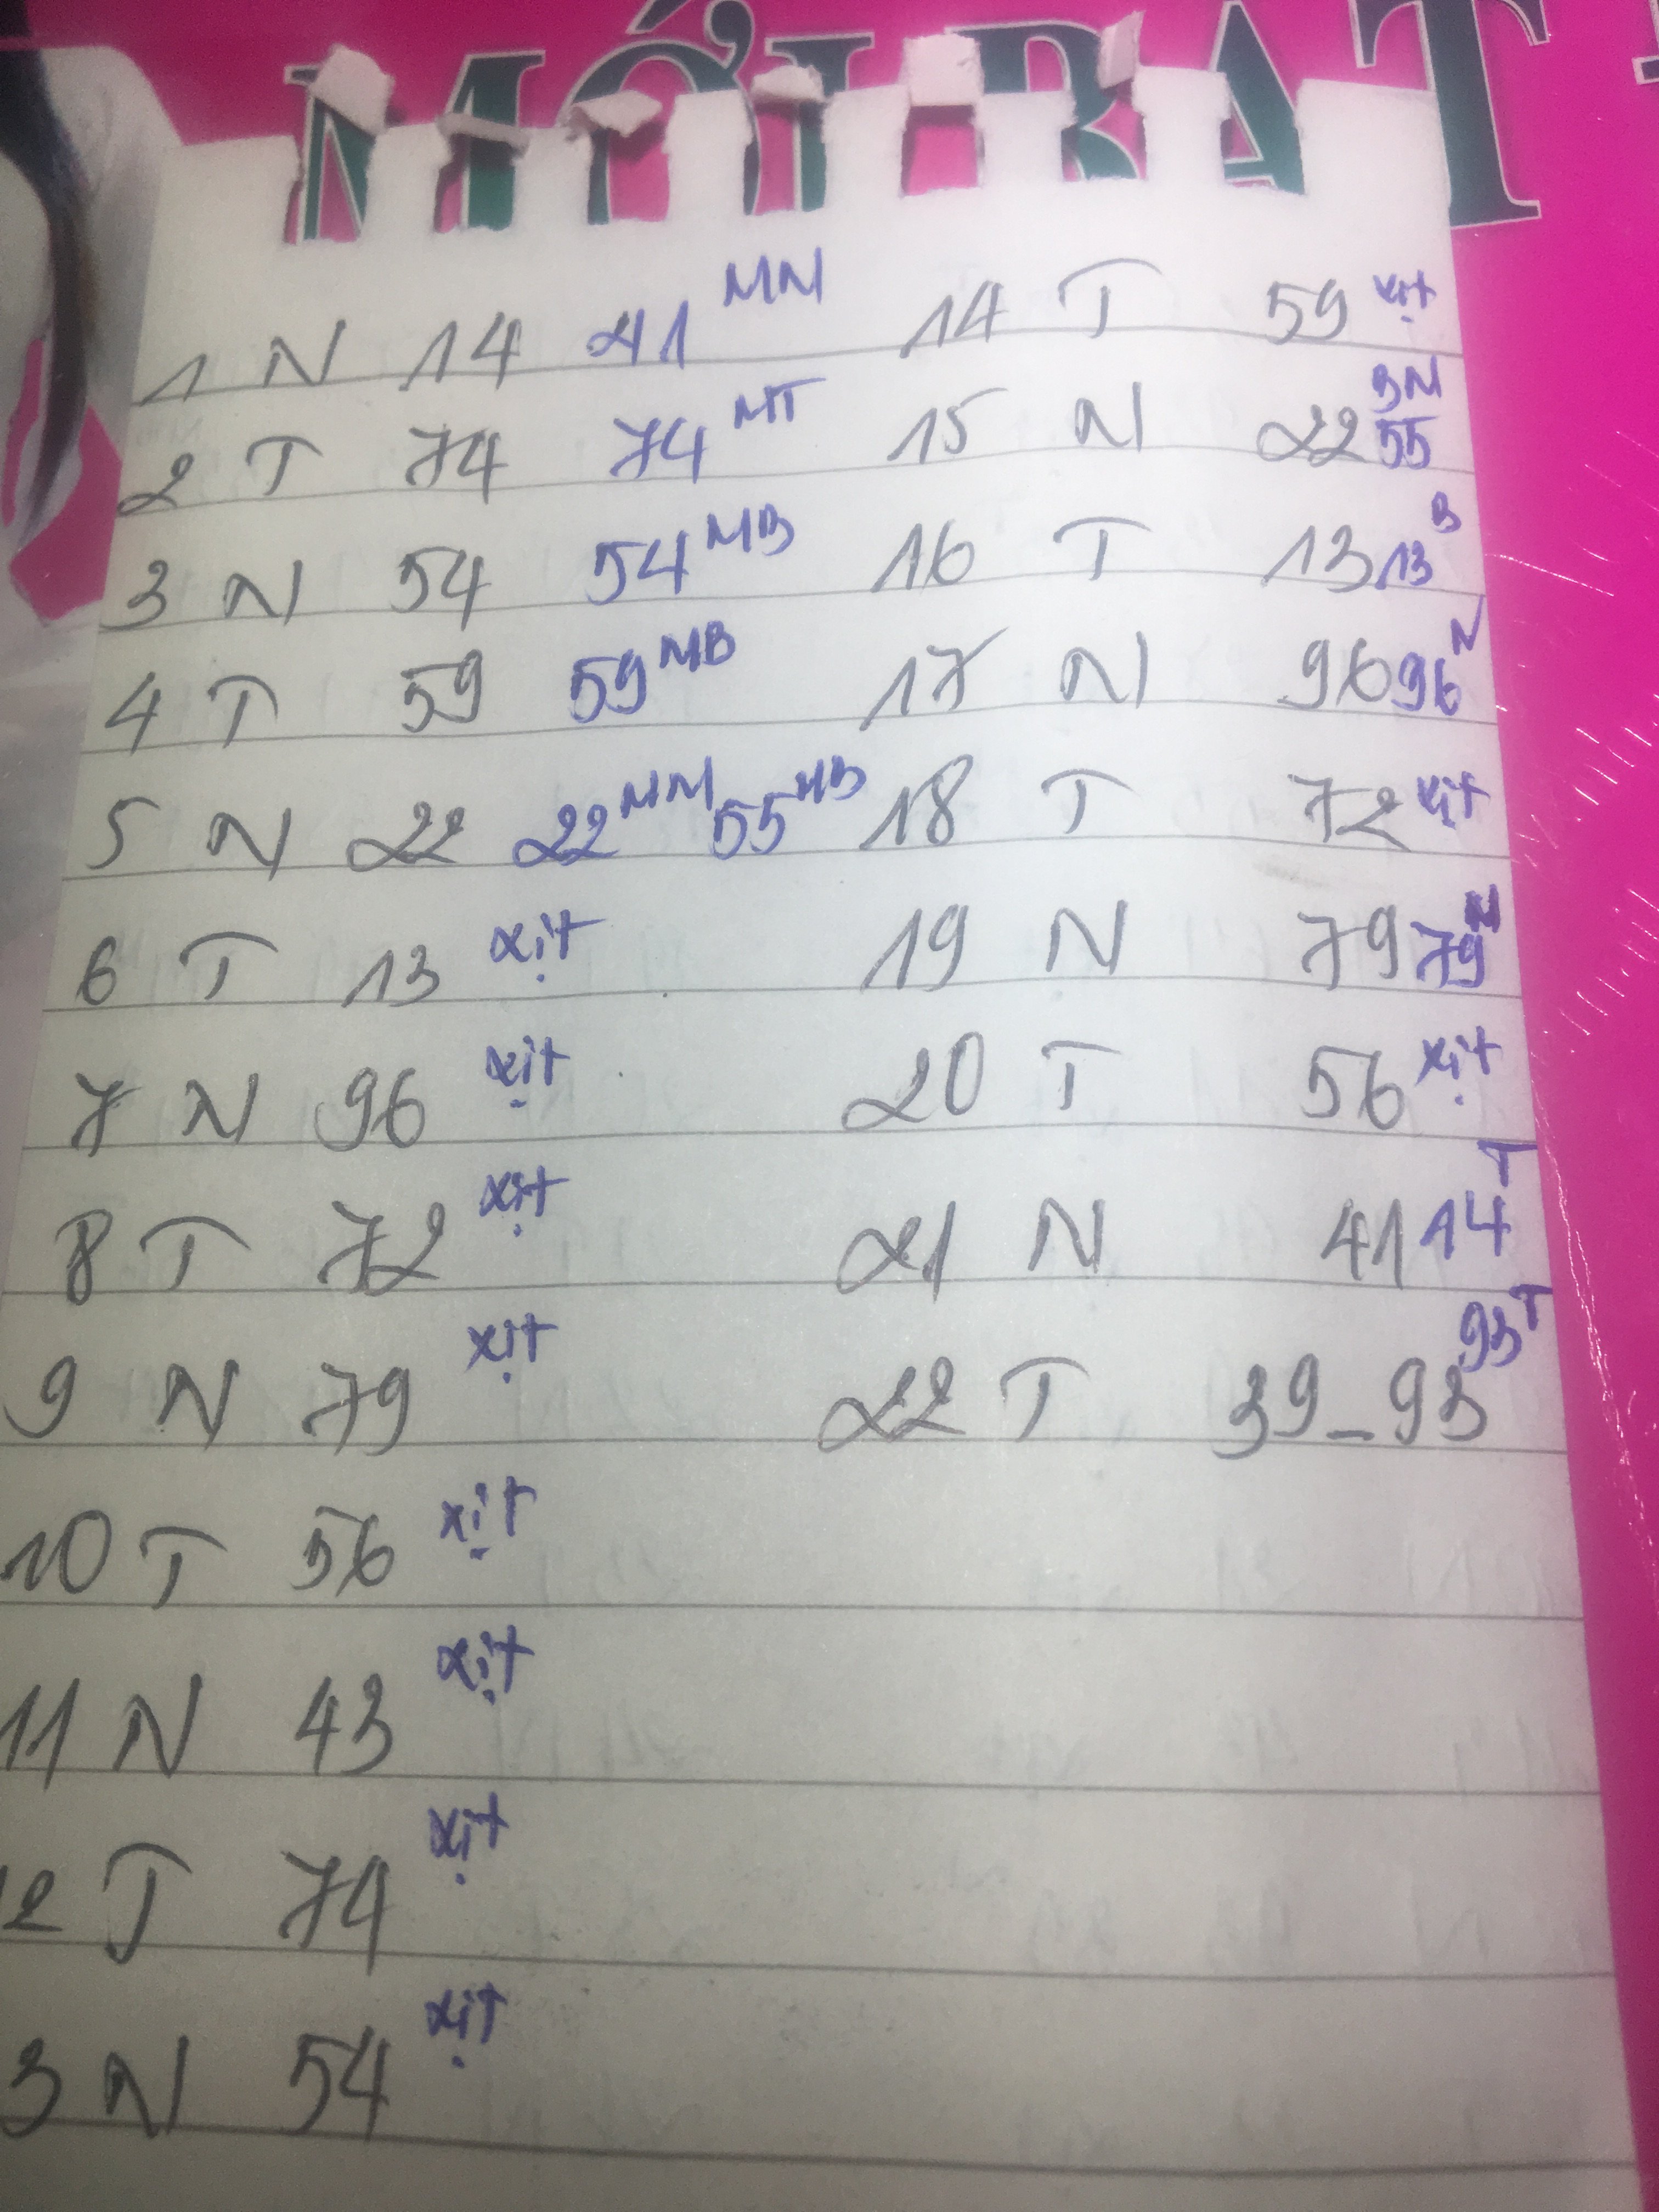 MỚI BẠT
1 N 14 41 MN
2 T 74 74 MT
3 N 54 54 MB
4 T 59 59 MB
5 N 22 22 MN 55 MB
6 T 13 xịt
7 N 96 xịt
8 T 72 xịt
9 N 79 xịt
10 T 56 xịt
11 N 43 xịt
12 T 74 xịt
3 N 54 xịt
14 T 59 xịt
15 N 22 55 BN
16 T 13 13 B
17 N 96 96 N
18 T 72 xịt
19 N 79 79 N
20 T 56 xịt
21 N 41 14 T
22 T 39_93 93 T